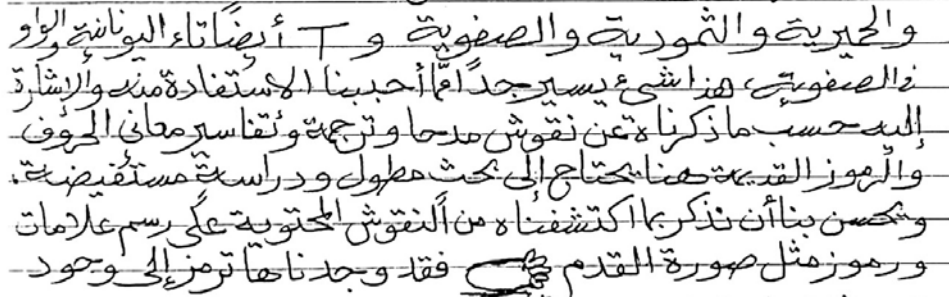 والحميرية والثمودية والصفوية و T أيضًا تاء اليونانية والواو
في الصفوية، هذا شيء يسير جدًا مما أحببنا الاستفادة منه والإشارة
إليه حسب ما ذكرناه عن نقوش مدحا وترجمة وتفاسير معاني الحروف
والرموز القديمة هنا يحتاج إلى بحث مطول ودراسة مستفيضة.
وتحسن بنا أن نذكر بما اكتشفناه من النقوش المحتوية على رسم علامات
ورموز مثل صورة القدم فقد وجدناها ترمز إلى وجود